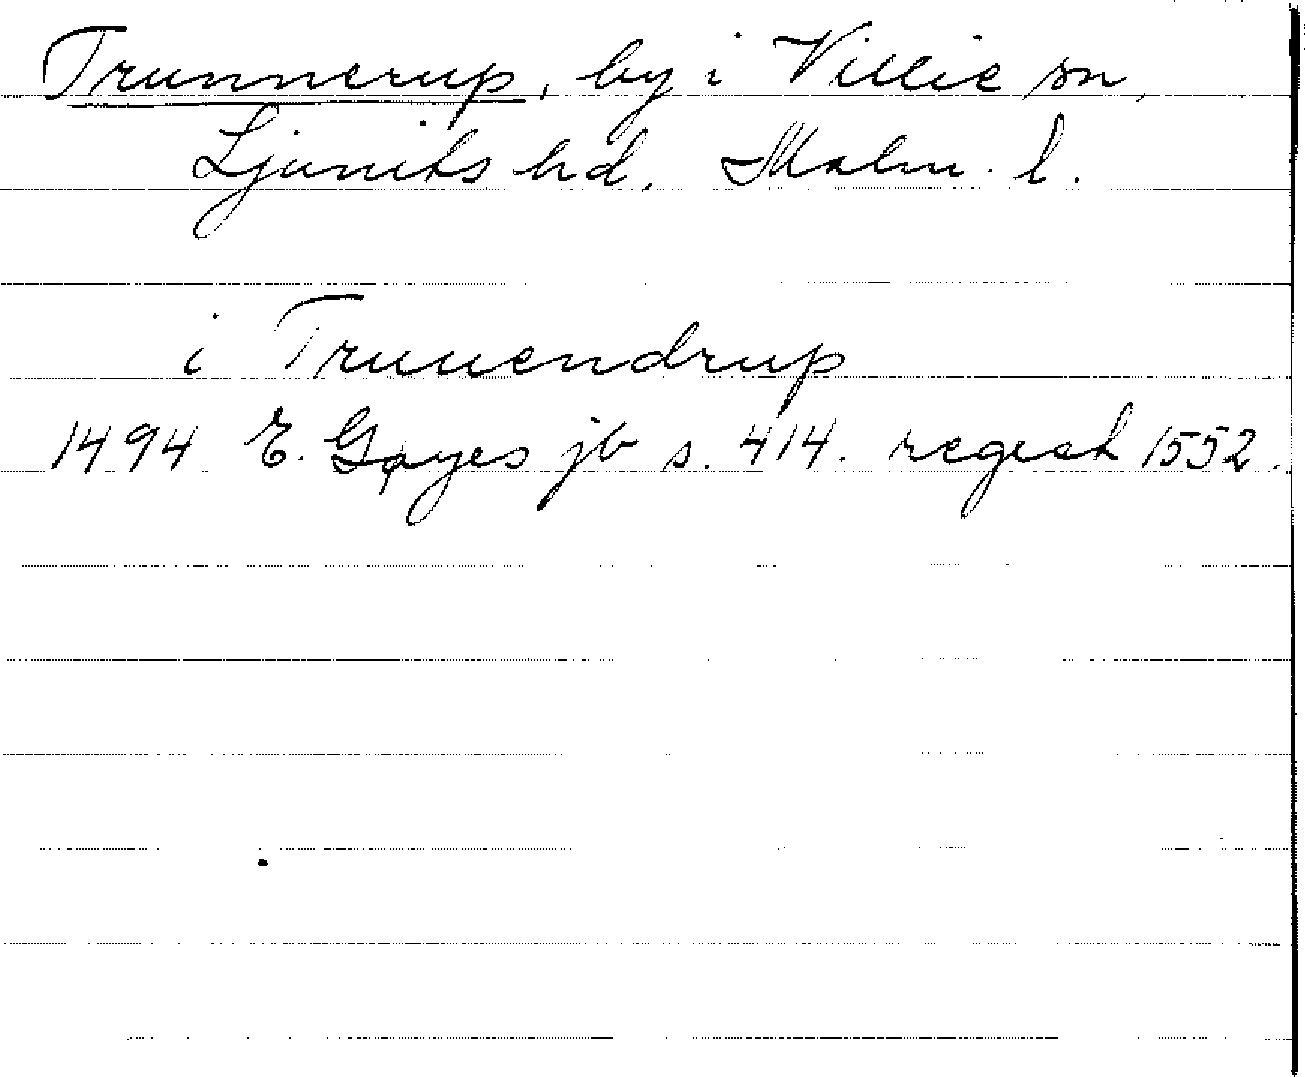 Trunnerup, by i Villie sn,
Ljunits hd, Malm. l.
i Trunendrup
1494 E. Gøyes jb s. 414. regest 1552.